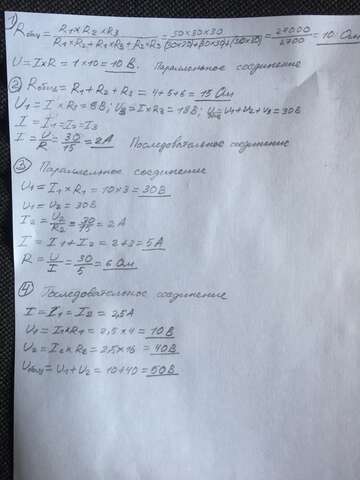 1) Rобщ = R1 x R2 x R3 / R1 x R2 + R1 x R3 + R2 x R3 = 30 x 30 x 30 / (30x30)+(30x30)+(30x30) = 27000 / 2700 = 10 Ом
U = I x R = 1 x 10 = 10 В. Параллельное соединение
2) Rобщ = R1 + R2 + R3 = 4 + 5 + 6 = 15 Ом
U1 = I x R1 = 8 В; U3 = I x R3 = 18 В; Uобщ = U1 + U2 + U3 = 30 В
I = I1 = I2 = I3
I = U / R = 30 / 15 = 2 А Последовательное соединение
3) Параллельное соединение
U1 = I1 x R1 = 10 x 3 = 30 В
U1 = U2 = 30 В
I2 = U2 / R2 = 30 / 15 = 2 А
I = I1 + I2 = 2 + 3 = 5 А
R = U / I = 30 / 5 = 6 Ом
4) Последовательное соединение
I = I1 = I2 = 2,5 А
U1 = I1 x R1 = 2,5 x 4 = 10 В
U2 = I2 x R2 = 2,5 x 16 = 40 В
Uобщ = U1 + U2 = 10 + 40 = 50 В